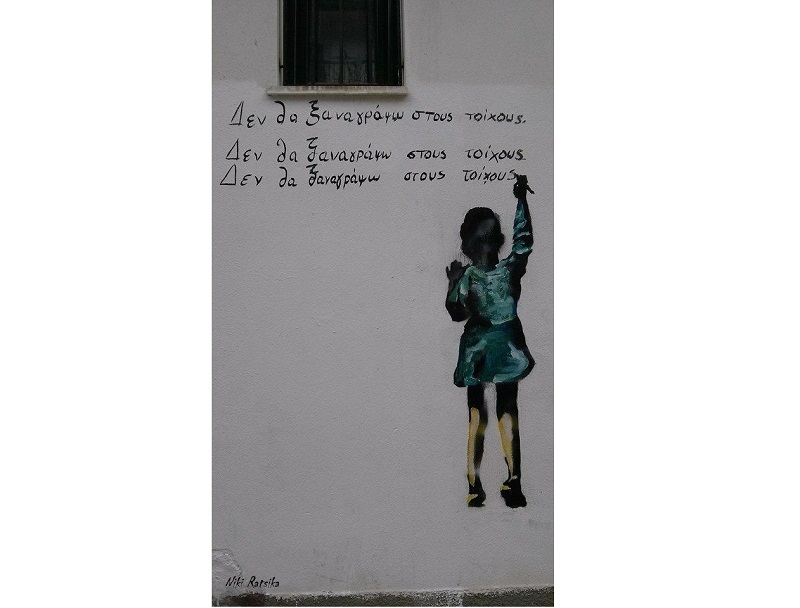 Δεν θα ξαναγράψω στους τοίχους.
Δεν θα ξαναγράψω στους τοίχους
Δεν θα ξαναγράψω στους τοίχους
Niki Ratsika